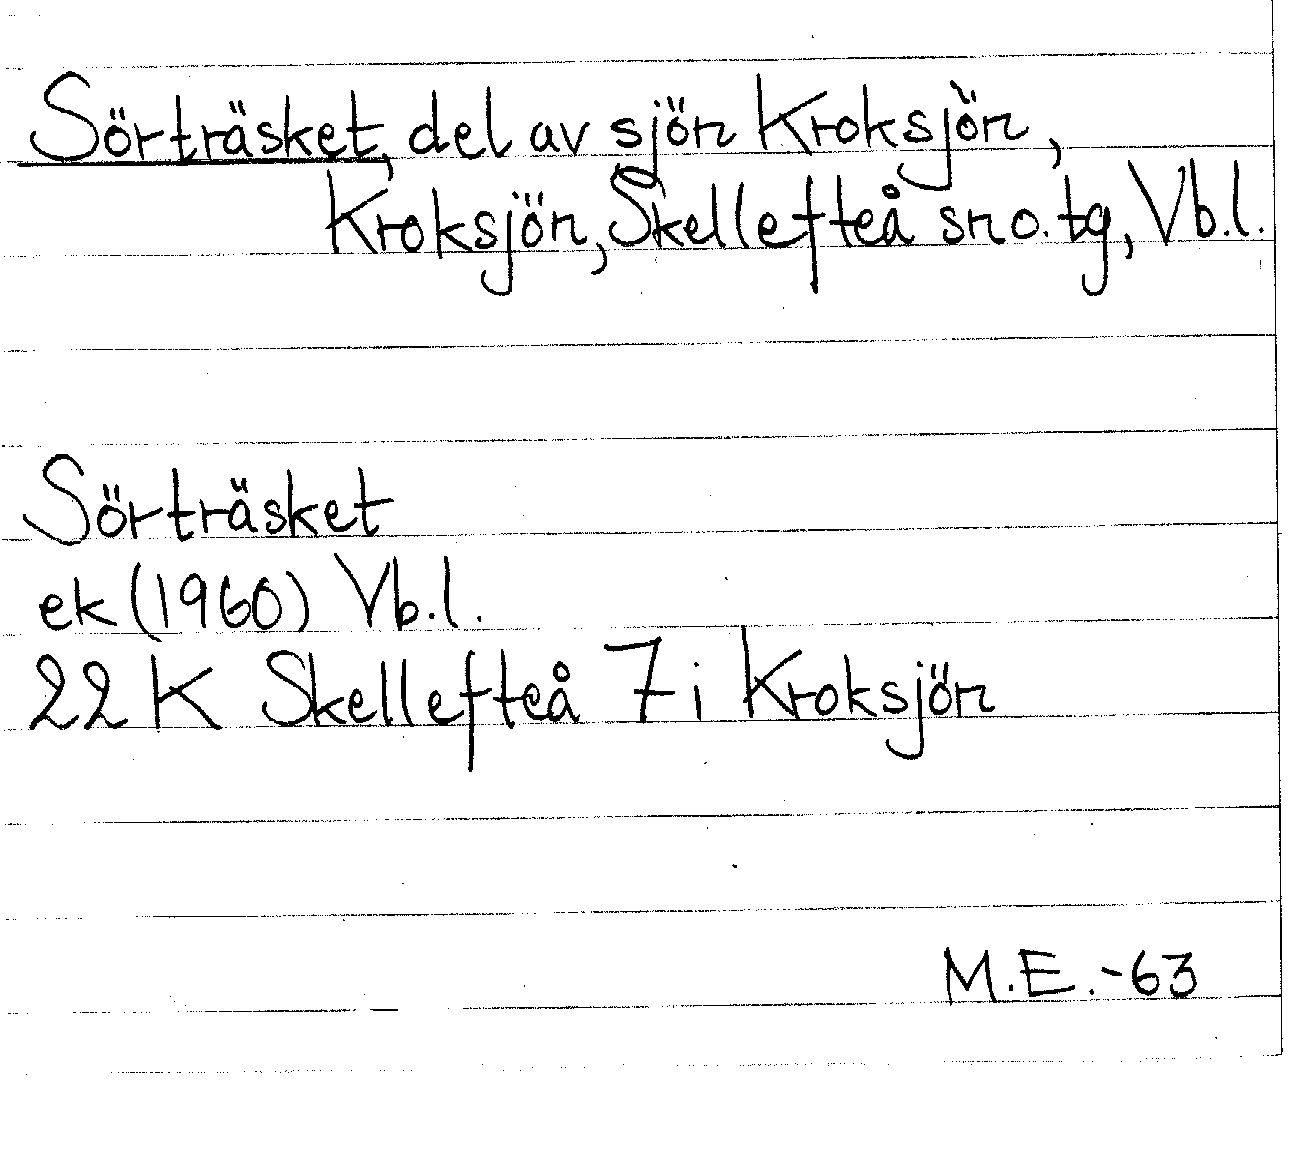 Sörträsket, del av sjön Kroksjön,
Kroksjön, Skellefteå sn o. tg, Vb.l.
Sörträsket
ek (1960) Vb.l.
22 K Skellefteå 7 i Kroksjön
M.E.-63